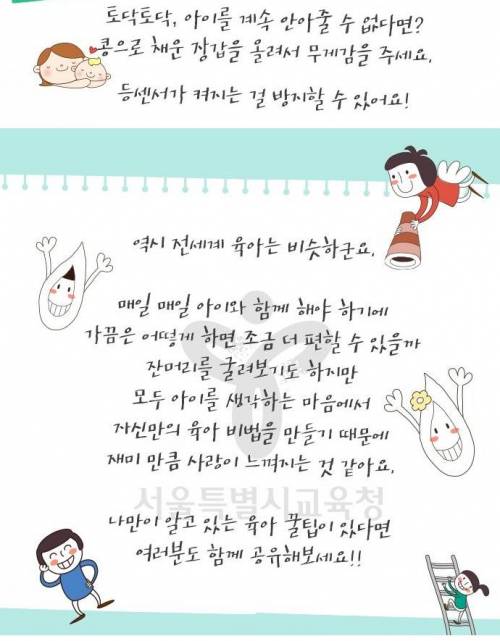 토닥토닥, 아이를 계속 안아줄 수 없다면?
콩으로 채운 장갑을 올려서 무게감을 주세요.
등센서가 켜지는 걸 방지할 수 있어요!
역시 전세계 육아는 비슷하군요.
매일 매일 아이와 함께 해야 하기에
가끔은 어떻게 하면 조금 더 편할 수 있을까
잔머리를 굴려보기도 하지만
모두 아이를 생각하는 마음에서
자신만의 육아 비법을 만들기 때문에
재미 만큼 사랑이 느껴지는 것 같아요.
서울특별시교육청
나만이 알고 있는 육아 꿀팁이 있다면
여러분도 함께 공유해보세요!!